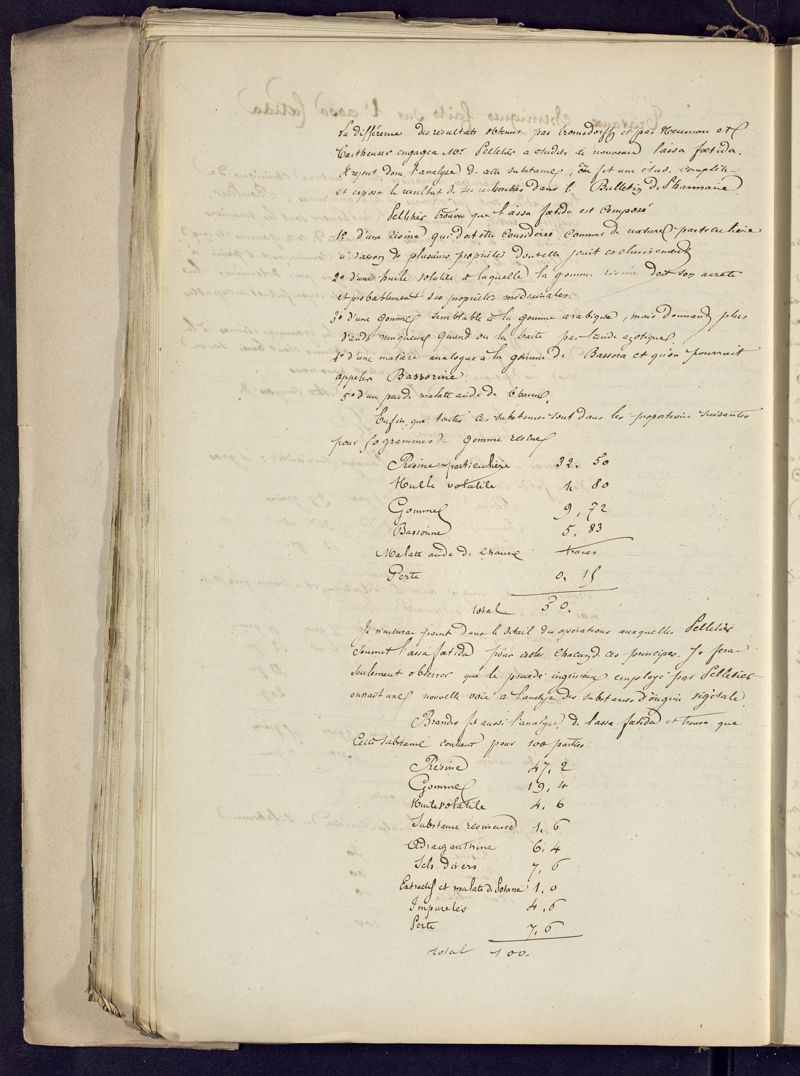 La différence des resultats obtenus par Tromsdorff et par Neumann et
Cartheuser engagea Mr Pelletier a etudier de nouveau l'assa fœtida.
Il reprit donc l'analyse de cette substance, en fit une étude complette
et exposa le resultat de ses recherches dans le Bulletin de Pharmacie.
Pelletier trouva que l'assa fœtida est composé
1º d'une résine qui doit être considérée comme de nature particulière
à raison de plusieurs propriétés dont elle jouit exclusivement
2º d'une huile volatile à laquelle la gomme resine doit son acreté
et probablement ses propriétés medicinales.
3º d'une gomme semblable à la gomme arabique, mais donnant plus
d'acide muqueux quand on la traite par l'acide azotique.
4º d'une matière analogue à la gomme de Bassora et qu'on pourrait
appeler Bassorine.
5º d'un peu de malate acide de chaux.
Enfin que toutes ces substances sont dans les proportions suivantes
pour 50 grammes de gomme resine
Résine particulière 32. 50
Huile volatile 1. 80
Gomme 9, 72
Bassorine 5, 83
Malate acide de chaux traces
Perte 0. 15
total 50.
Je n'entrerai point dans le détail des operations auxquelles Pelletier
soumet l'assa fœtida pour isoler chacun de ces principes. Je ferai
seulement observer que le procédé ingénieux employé par Pelletier
ouvrait une nouvelle voie a l'analyse des substances d'origine végétale.
Brandes fit aussi l'analyse de l'assa fœtida et trouva que
Cette substance contient pour 100 parties:
Résine 47, 2
Gomme 19, 4
Huile volatile 4. 6
Substance resineuse 1. 6
Adraganthine 6. 4
Sels divers 7, 6
Extractif et malate de Potasse 1, 0
Impuretés 4, 6
Perte 7, 6
total 100.